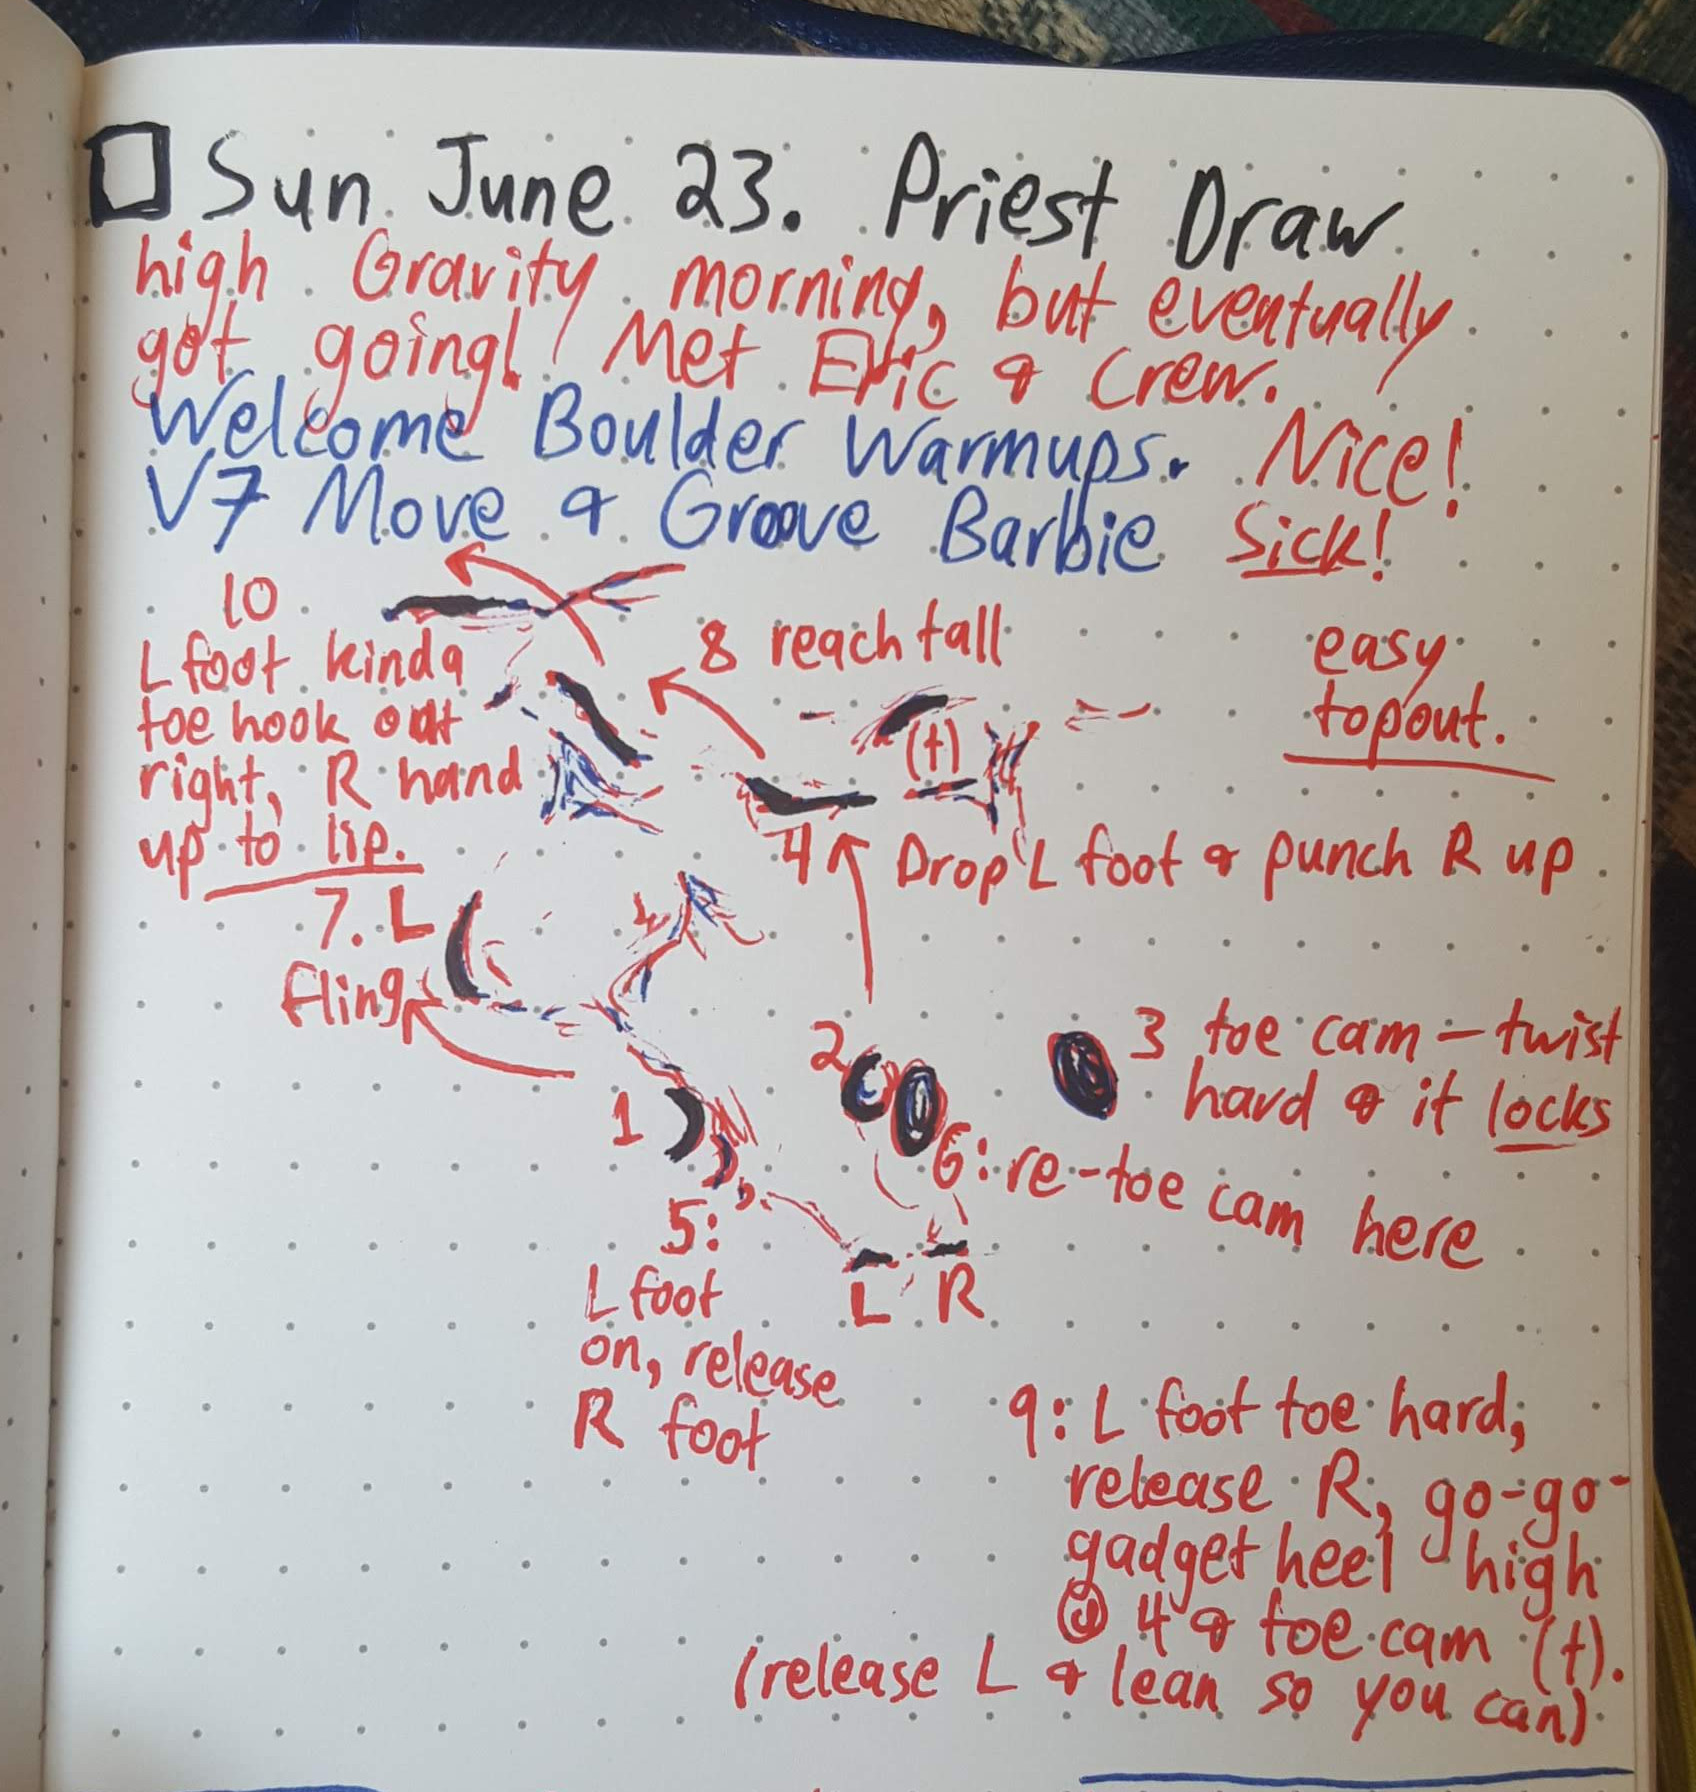 Sun June 23. Priest Draw
high Gravity morning, but eventually
got going! Met Eric & Crew.
Welcome Boulder Warmups. Nice!
V7 Move & Groove Barbie Sick!
10
L foot kinda
toe hook out
right, R hand
up to lip.
8 reach tall
easy
topout.
(t)
4 Drop L foot & punch R up
7. L
fling
2
3 toe cam – twist
hard & it locks
1
6: re-toe cam here
5:
L foot
on, release
R foot
L R
9: L foot toe hard,
release R, go-go-
gadget heel high
@ 4 & toe cam (t).
(release L & lean so you can)